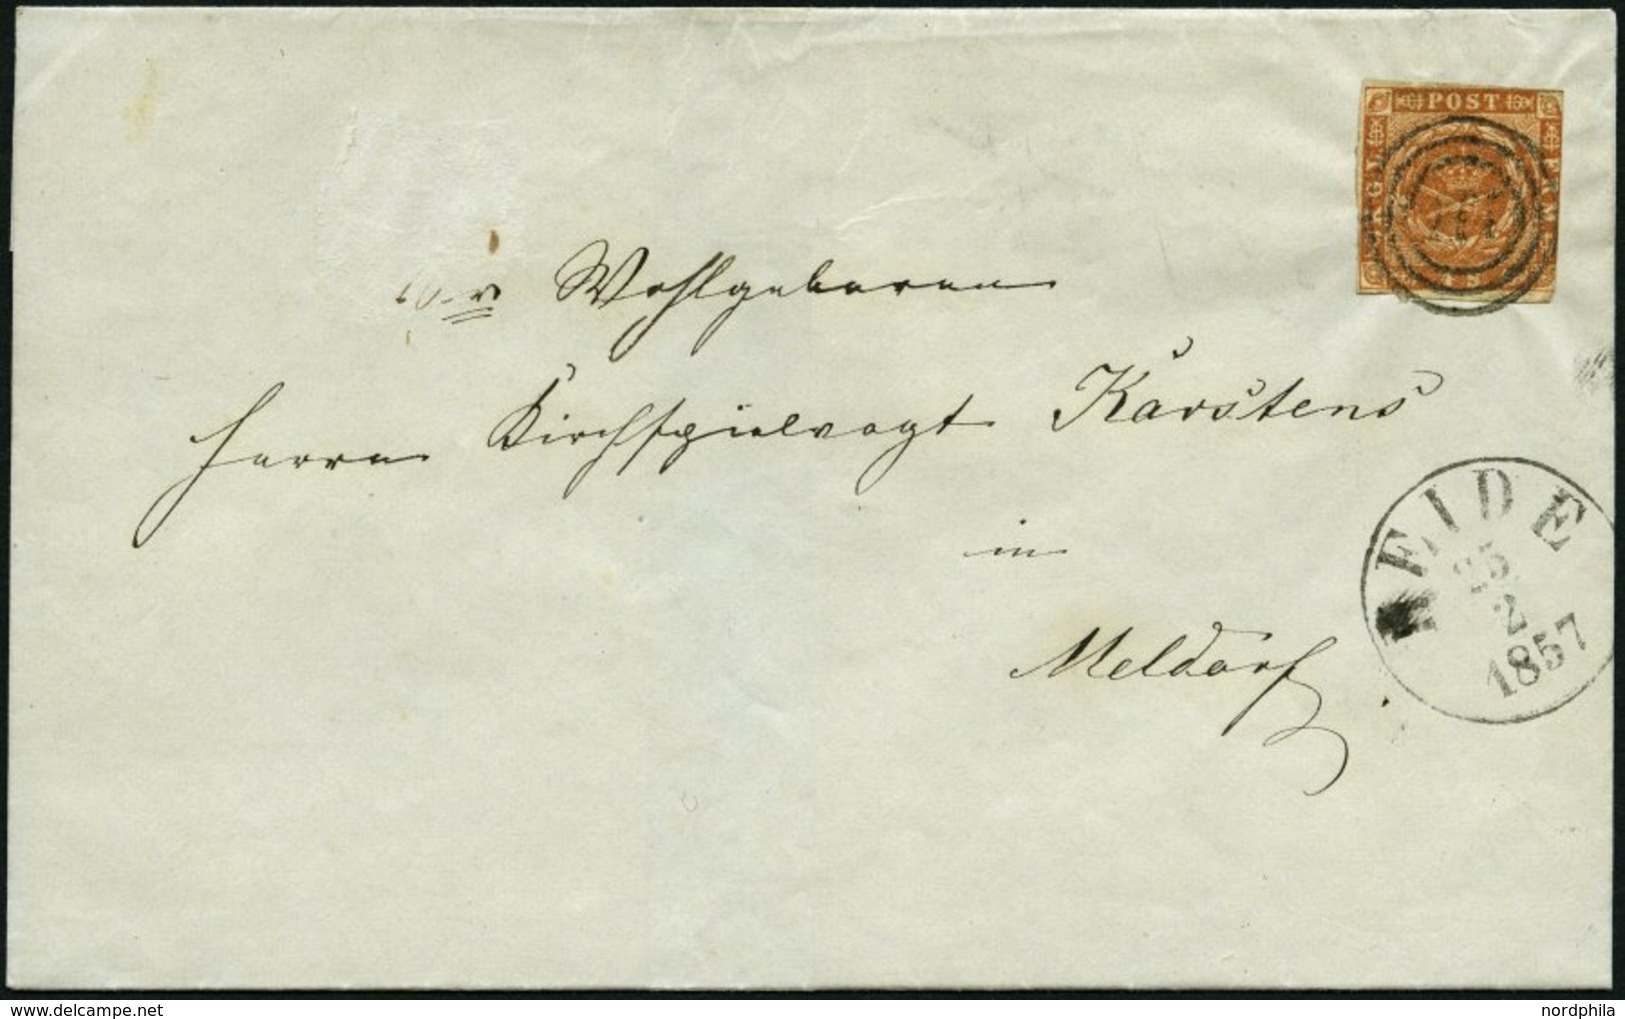 POST
FRM
Sr Wohlgeboren
Herrn Kirchspielvogt Karstens
in
Meldorf
HEIDE
25
2
1857
delcampe.net
nordphila